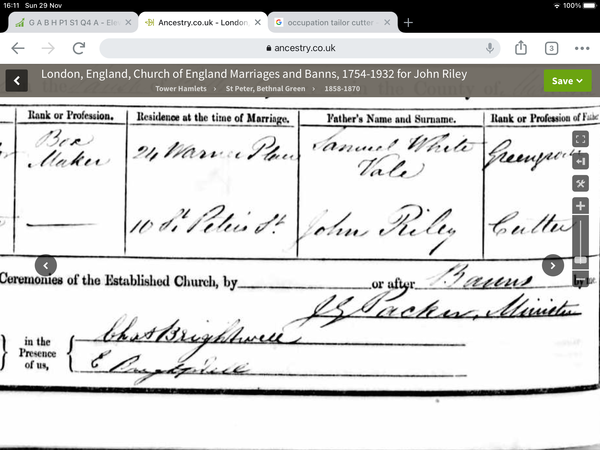 16:11 Sun 29 Nov 100%
G A B H P1 S1 Q4 A - Ele
Ancestry.co.uk - London,
occupation tailor cutter -
ancestry.co.uk
3
London, England, Church of England Marriages and Banns, 1754-1932 for John Riley
Tower Hamlets > St Peter, Bethnal Green > 1858-1870
Save
Rank or Profession. Residence at the time of Marriage. Father's Name and Surname. Rank or Profession of Fathe
Box Maker 24 Warner Place Samuel White Vale
10 St Peters St. John Riley Cutter
Ceremonies of the Established Church, by or after Banns by me
J G Packer, Minister
in the Presence of us,
Chas Brightwell
E